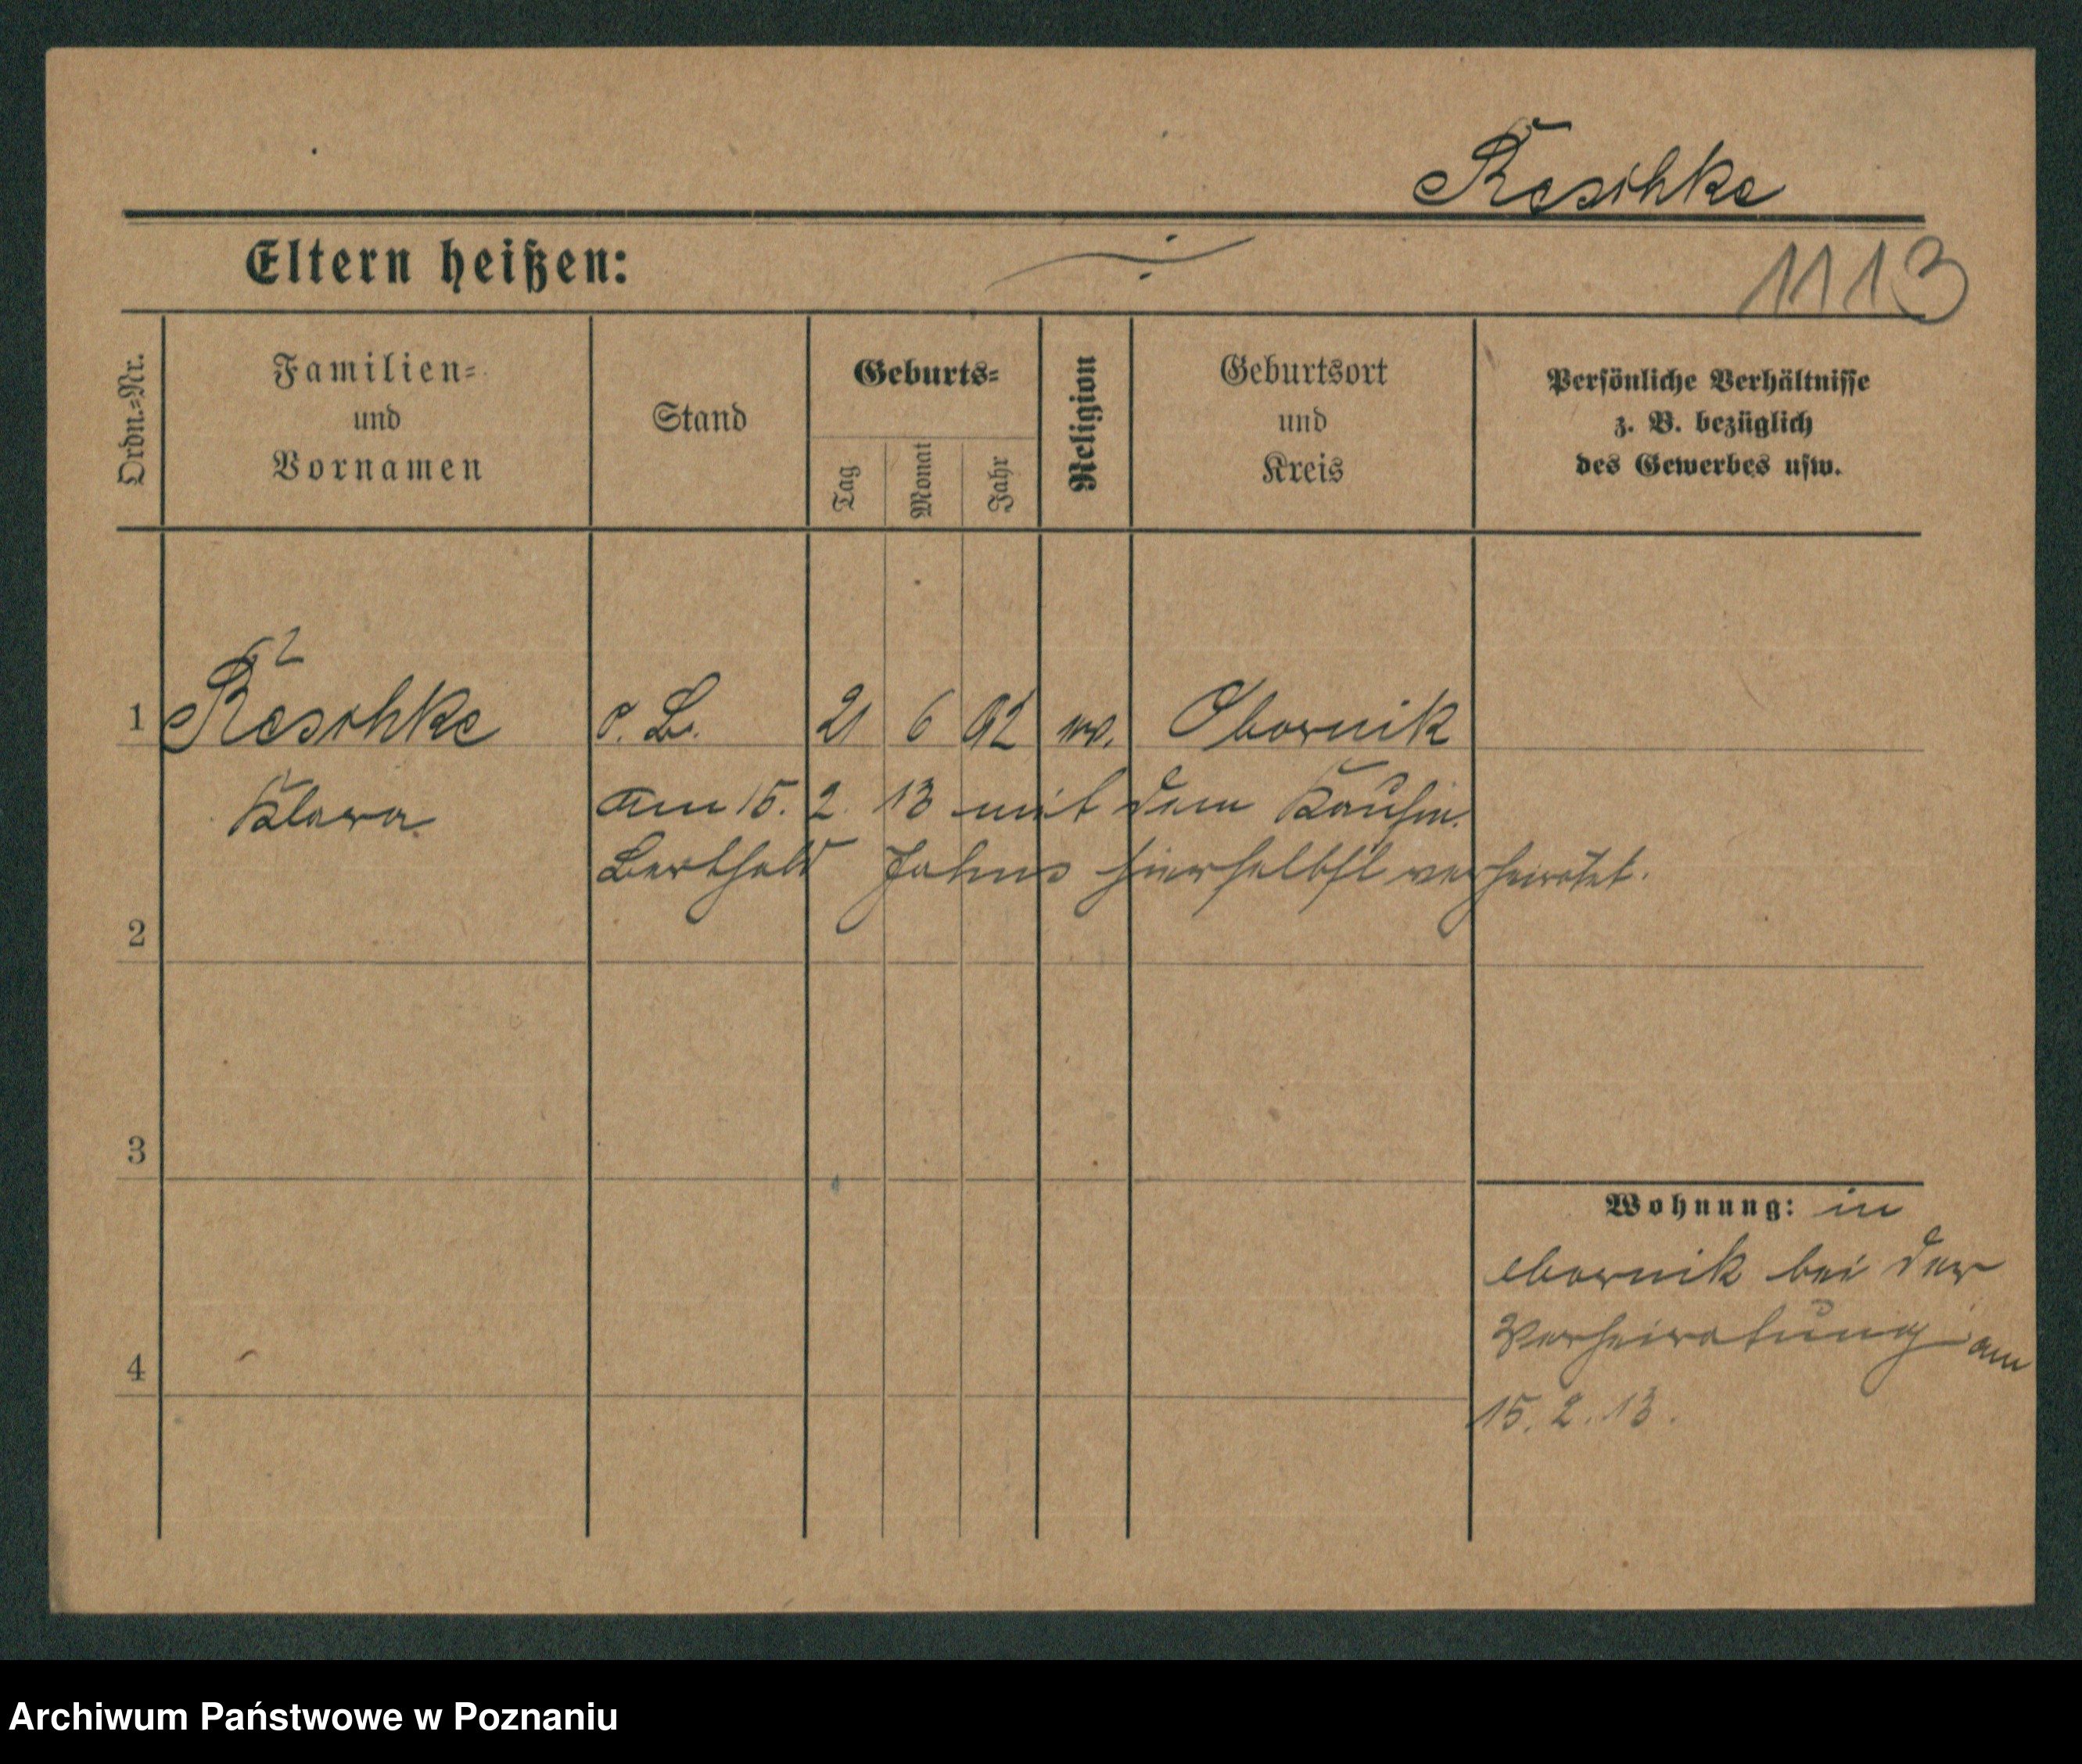 Reschke
Eltern heißen:
1113
Ordn.=Nr.
Familien=
und
Vornamen
Stand
Geburts=
Tag
Monat
Jahr
Religion
Geburtsort
und
Kreis
Persönliche Verhältnisse
z. B. bezüglich
des Gewerbes usw.
1 Reschke 21 6 92 ev. Obornik
Klara am 15. 2. 13 mit dem Kaufm.
Berthold Jahns hierselbst verheiratet.
2
3
4
Wohnung: in
Obornik bei der
Verheiratung am
15. 2. 13.
Archiwum Państwowe w Poznaniu